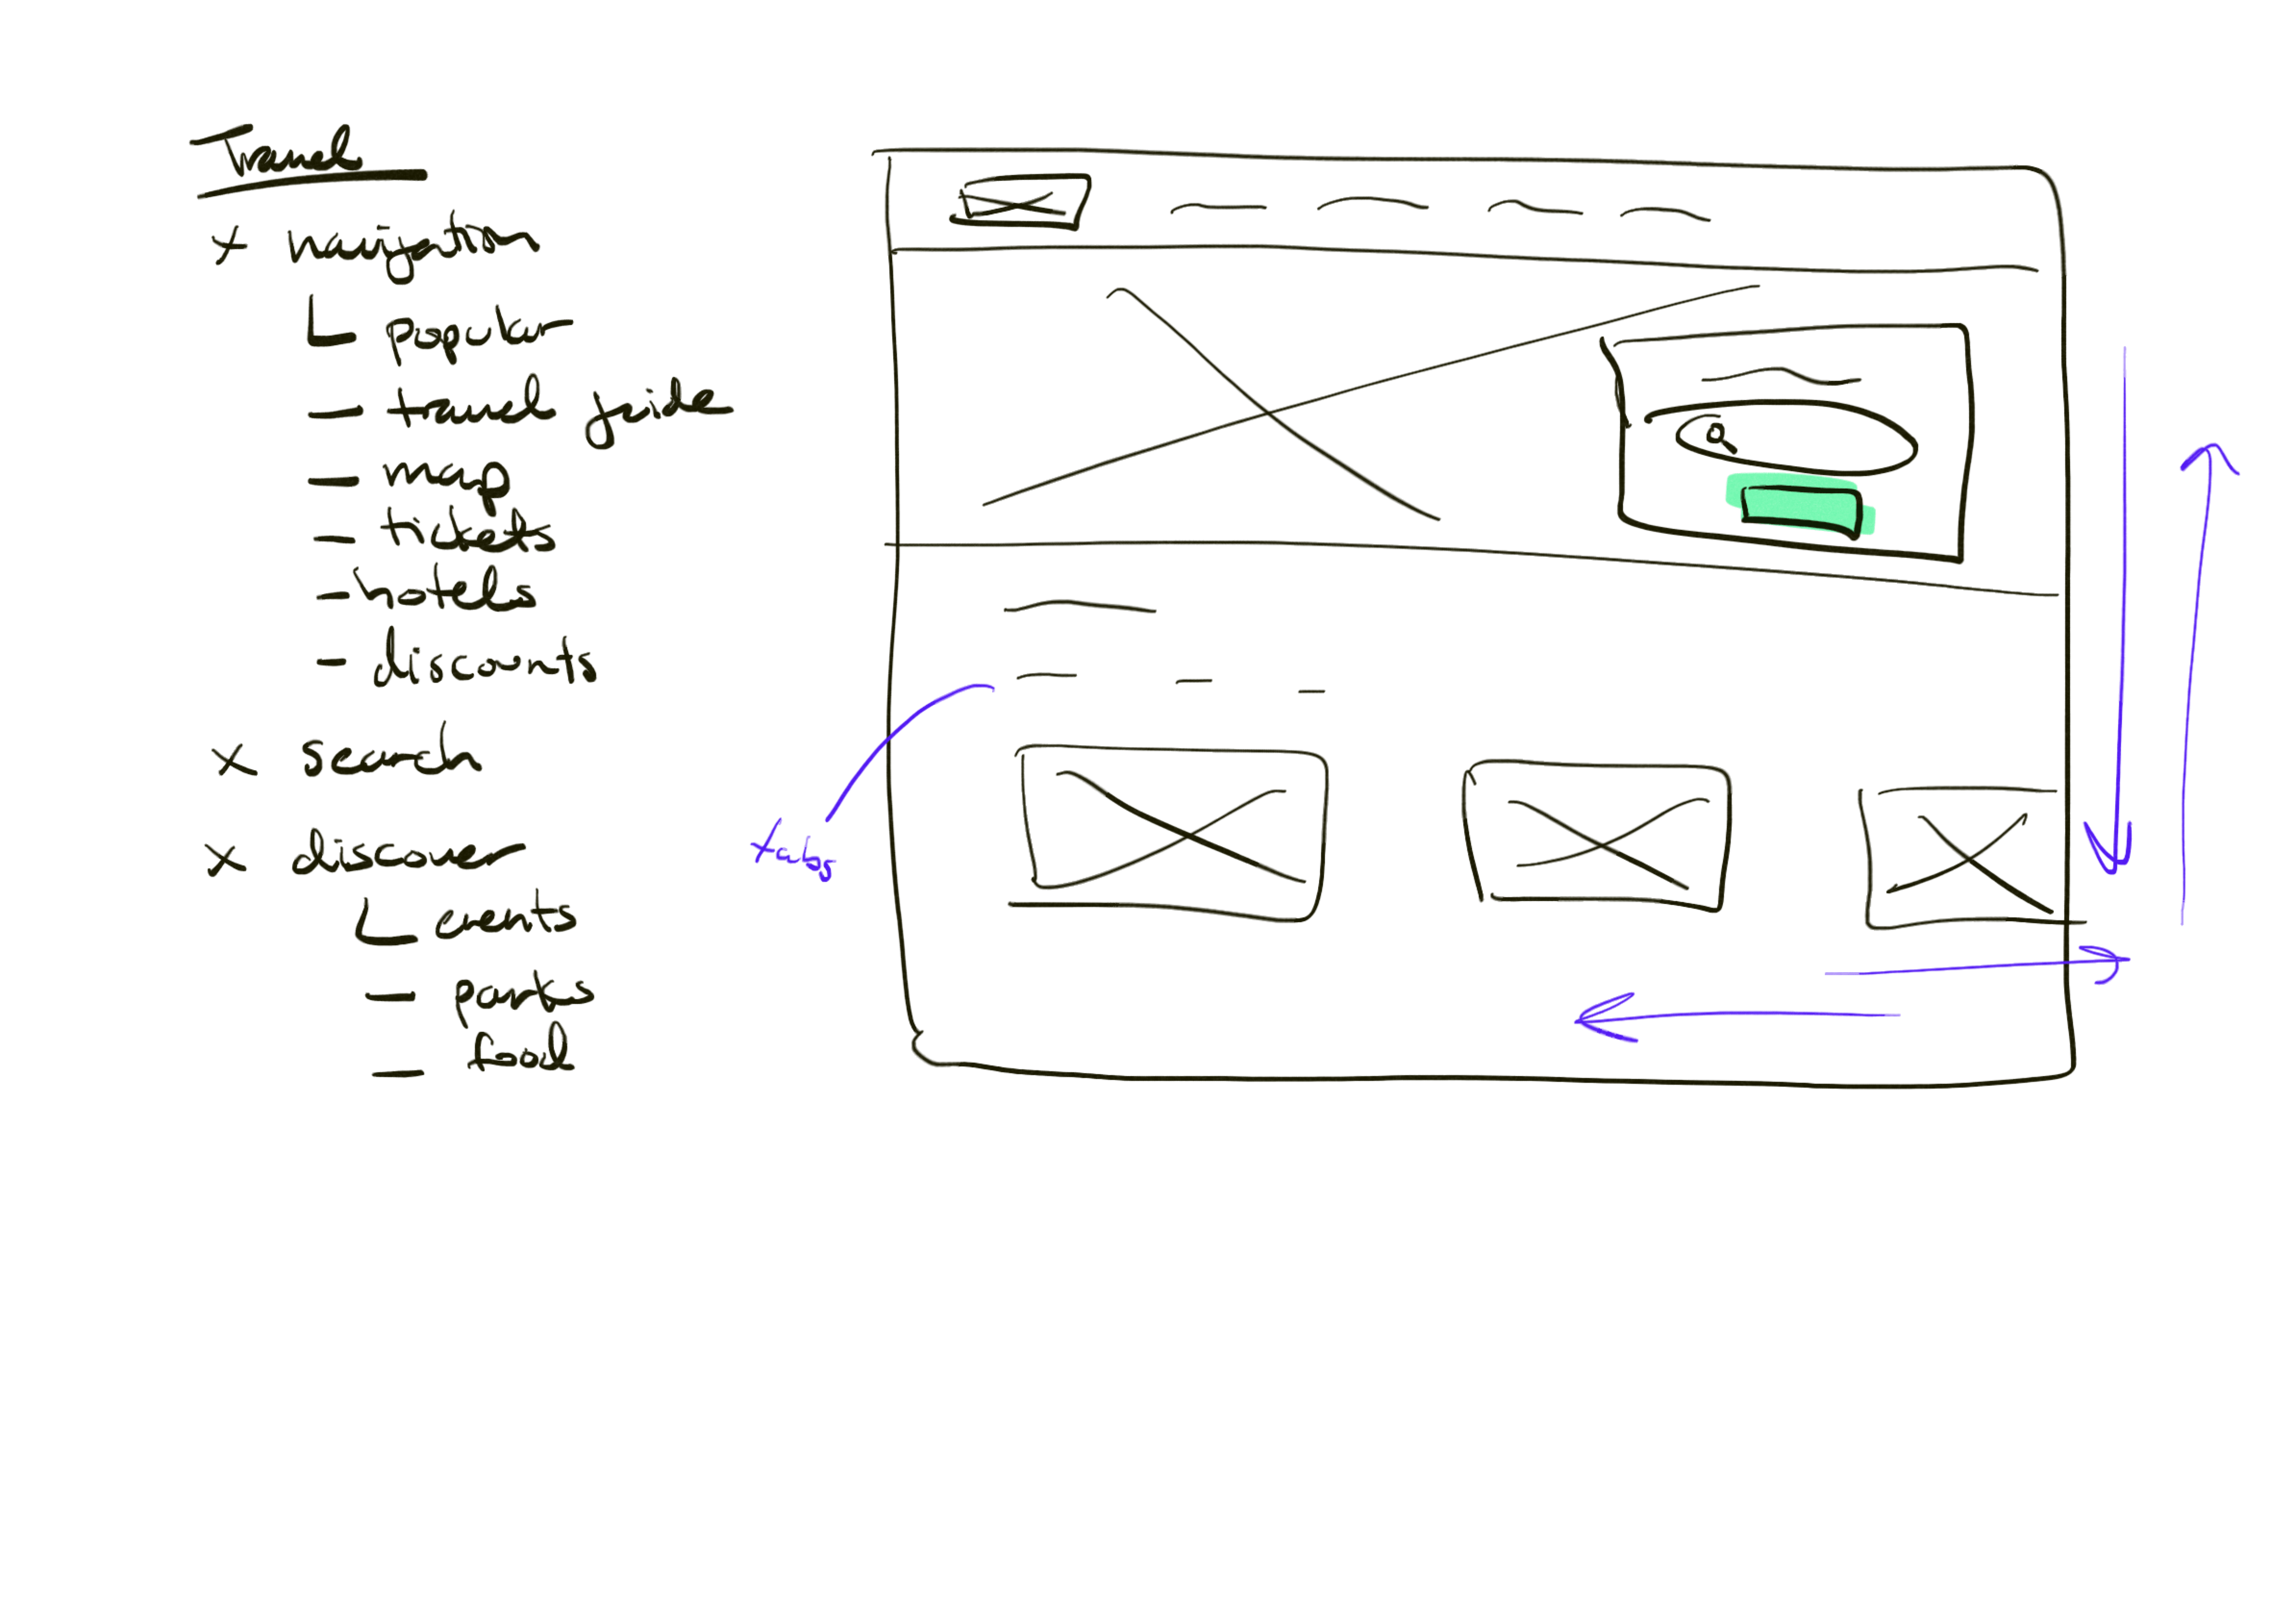 Travel
x navigation
popular
- travel guide
- map
- tickets
- hotels
- discounts
x search
x discover
events
- parks
- food
tabs